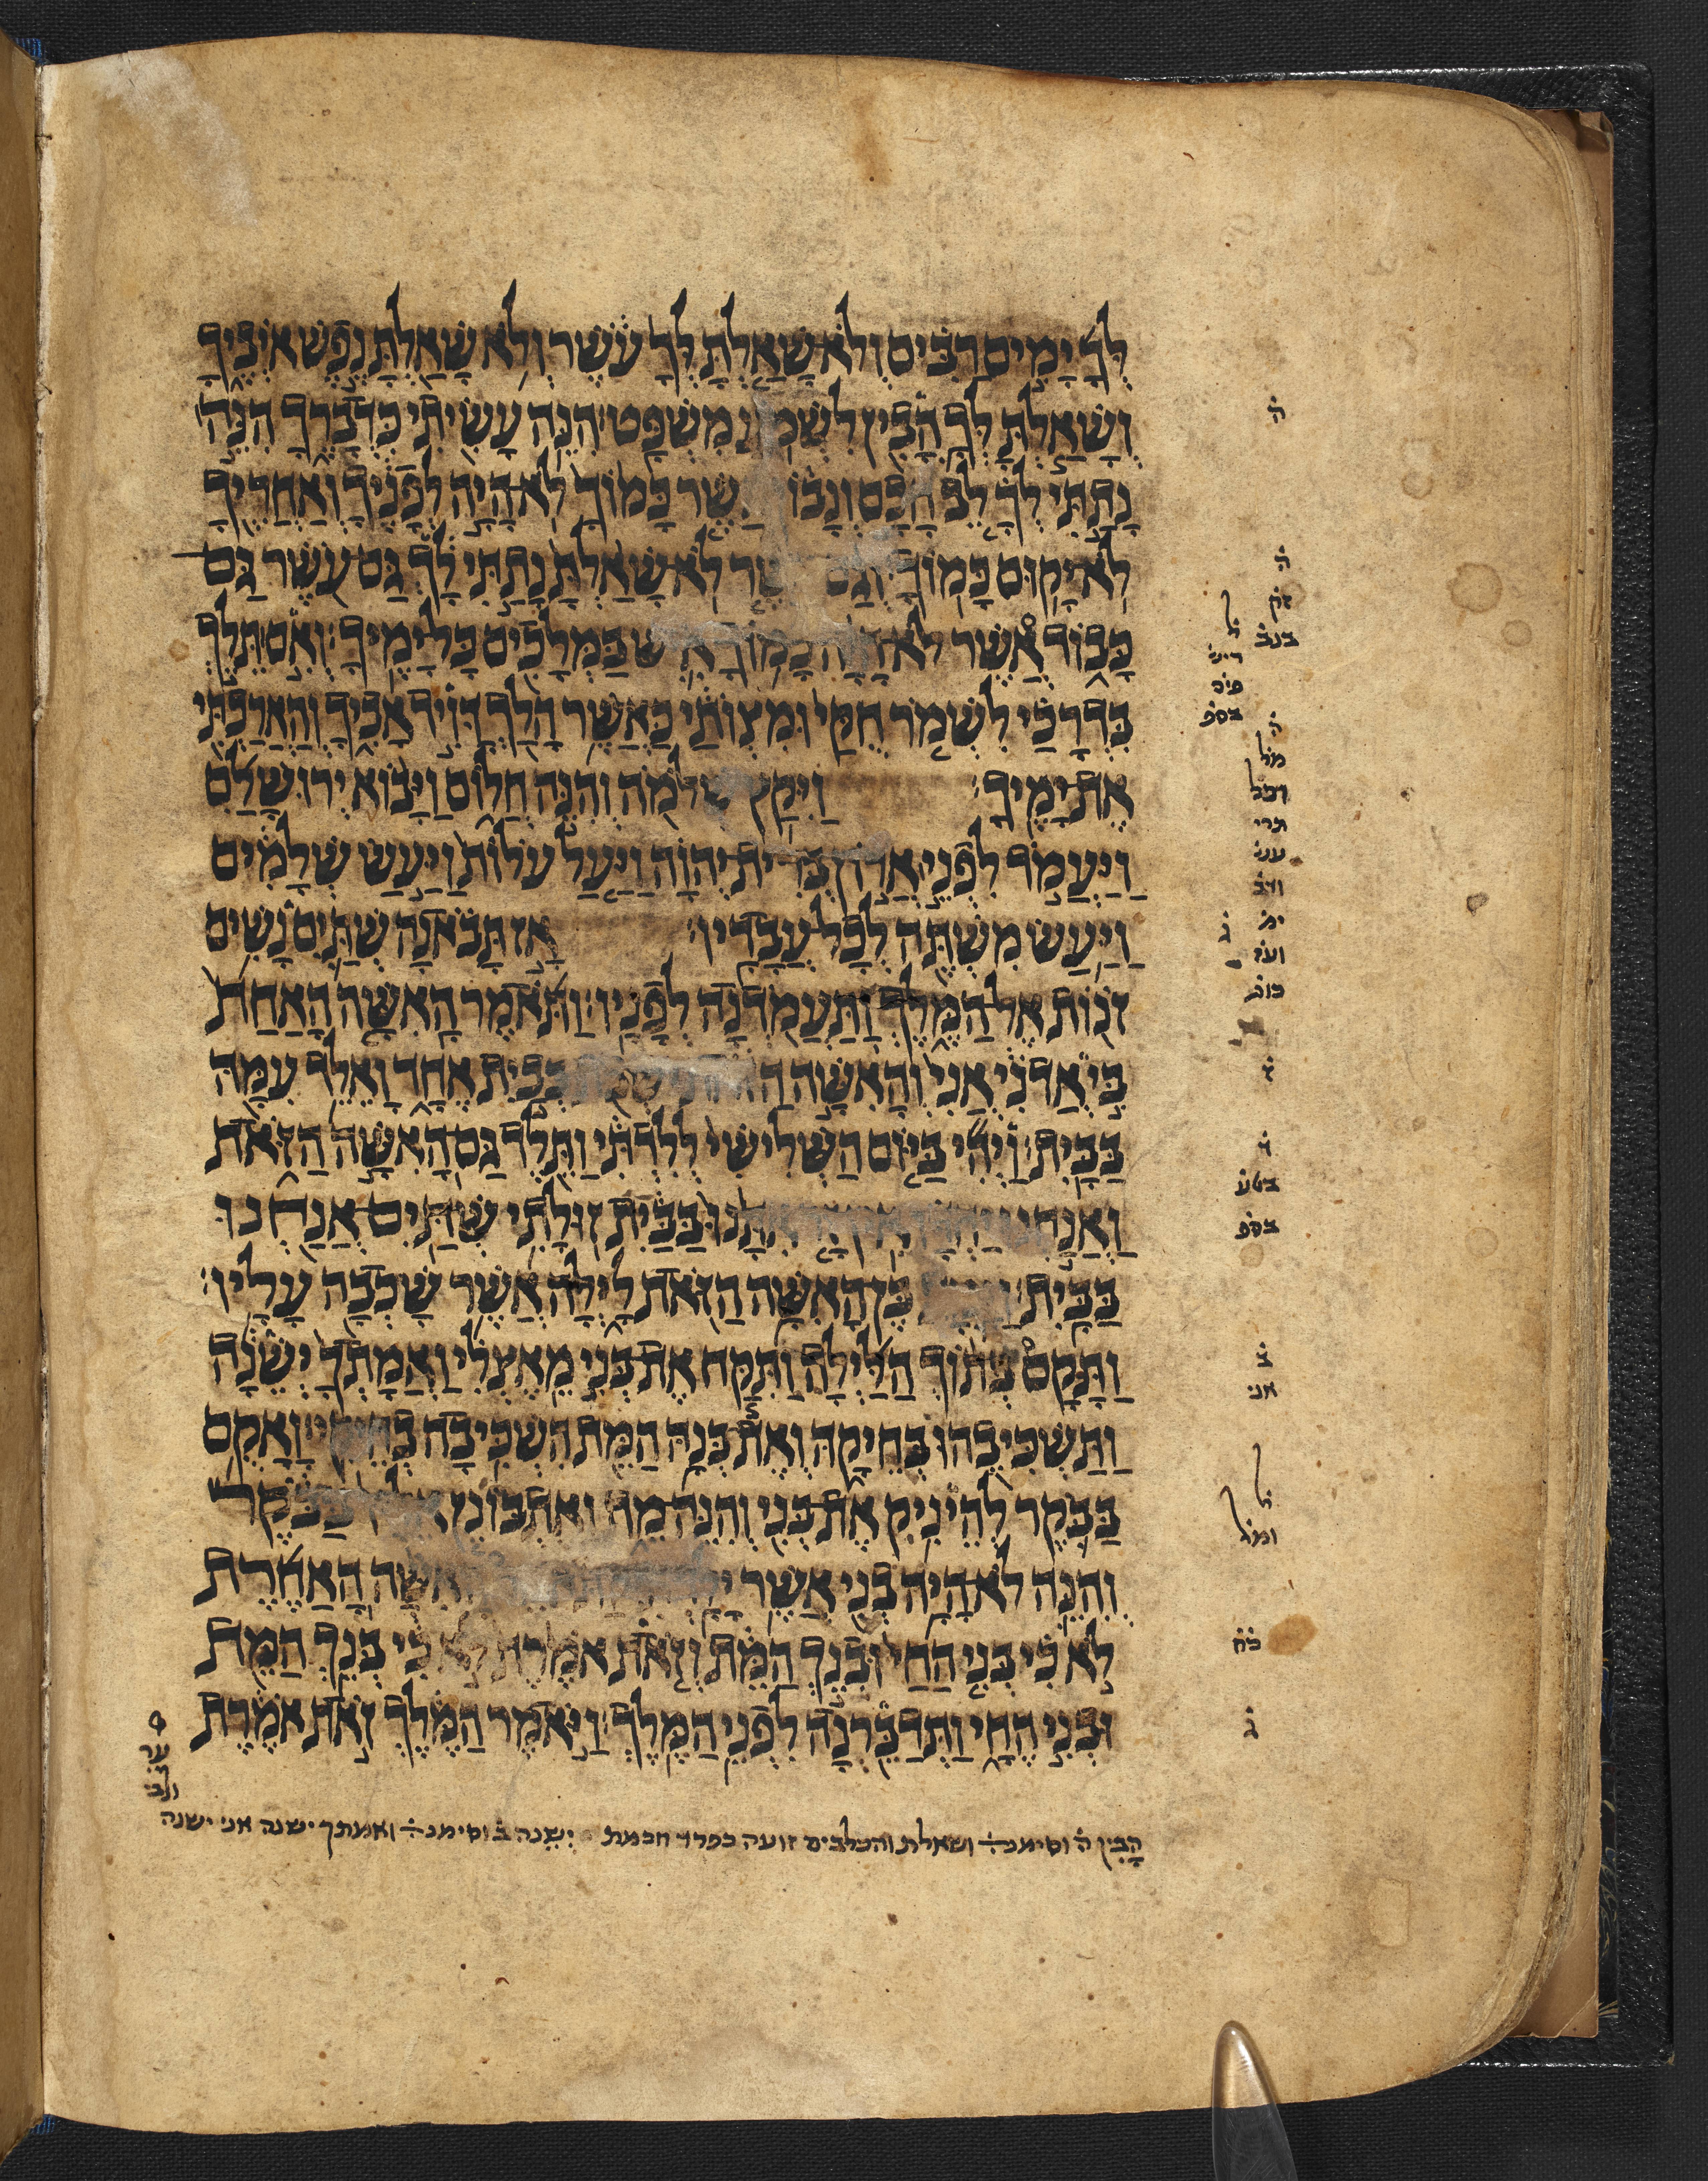 לְּךָ יָמִים רַבִּים וְלֹא־שָׁאַלְתָּ לְּךָ עֹשֶׁר וְלֹא שָׁאַלְתָּ נֶפֶשׁ אֹיְבֶיךָ
וְשָׁאַלְתָּ לְּךָ הָבִין לִשְׁמֹעַ מִשְׁפָּט׃ הִנֵּה עָשִׂיתִי כִּדְבָרֶךָ הִנֵּה׀
נָתַתִּי לְךָ לֵב חָכָם וְנָבוֹן אֲשֶׁר כָּמוֹךָ לֹא־הָיָה לְפָנֶיךָ וְאַחֲרֶיךָ
לֹא־יָקוּם כָּמוֹךָ׃ וְגַם אֲשֶׁר לֹא־שָׁאַלְתָּ נָתַתִּי לָךְ גַּם־עֹשֶׁר גַּם־
כָּבוֹד אֲשֶׁר לֹא־הָיָה כָמוֹךָ אִישׁ בַּמְּלָכִים כָּל־יָמֶיךָ׃ וְאִם׀ תֵּלֵךְ
בִּדְרָכַי לִשְׁמֹר חֻקַּי וּמִצְוֹתַי כַּאֲשֶׁר הָלַךְ דָּוִיד אָבִיךָ וְהַאֲרַכְתִּי
אֶת־יָמֶיךָ׃ וַיִּקַץ שְׁלֹמֹה וְהִנֵּה חֲלוֹם וַיָּבוֹא יְרוּשָׁלִַם
וַיַּעֲמֹד לִפְנֵי׀ אֲרוֹן בְּרִית־יְהוָה וַיַּעַל עֹלוֹת וַיַּעַשׂ שְׁלָמִים
וַיַּעַשׂ מִשְׁתֶּה לְכָל־עֲבָדָיו׃ אָז תָּבֹאנָה שְׁתַּיִם נָשִׁים
זֹנוֹת אֶל־הַמֶּלֶךְ וַתַּעֲמֹדְנָה לְפָנָיו׃ וַתֹּאמֶר הָאִשָּׁה הָאַחַת
בִּי אֲדֹנִי אֲנִי וְהָאִשָּׁה הַזֹּאת יֹשְׁבֹת בְּבַיִת אֶחָד וָאֵלֵד עִמָּהּ
בַּבָּיִת׃ וַיְהִי בַּיּוֹם הַשְּׁלִישִׁי לְלִדְתִּי וַתֵּלֶד גַּם־הָאִשָּׁה הַזֹּאת
וַאֲנַחְנוּ יַחְדָּו אֵין־זָר אִתָּנוּ בַּבַּיִת זוּלָתִי שְׁתַּיִם־אֲנַחְנוּ
בַּבָּיִת׃ וַיָּמָת בֶּן־הָאִשָּׁה הַזֹּאת לָיְלָה אֲשֶׁר שָׁכְבָה עָלָיו׃
וַתָּקָם בְּתוֹךְ הַלַּיְלָה וַתִּקַּח אֶת־בְּנִי מֵאֶצְלִי וַאֲמָתְךָ יְשֵׁנָה
וַתַּשְׁכִּיבֵהוּ בְּחֵיקָהּ וְאֶת־בְּנָהּ הַמֵּת הִשְׁכִּיבָה בְחֵיקִי׃ וָאָקֻם
בַּבֹּקֶר לְהֵינִיק אֶת־בְּנִי וְהִנֵּה־מֵת וָאֶתְבּוֹנֵן אֵלָיו בַּבֹּקֶר
וְהִנֵּה לֹא־הָיָה בְנִי אֲשֶׁר יָלָדְתִּי׃ וַתֹּאמֶר הָאִשָּׁה הָאַחֶרֶת
לֹא כִי בְּנִי הַחַי וּבְנֵךְ הַמֵּת וְזֹאת אֹמֶרֶת לֹא כִי בְּנֵךְ הַמֵּת
וּבְנִי הֶחָי וַתְּדַבֵּרְנָה לִפְנֵי הַמֶּלֶךְ׃ וַיֹּאמֶר הַמֶּלֶךְ זֹאת אֹמֶרֶת
הָבִין ה וסימנ ושאלת והכלבים זועה כפלד חכמת יְשֵנה ב וסימנ ואמתך ישנה אני ישנה
ה
ה
זק
בנב
ה
ל
בספ
מל
וכל
תרי
עני
ג
ל
בטע
בספ
ב
אני
ל
ומל
כח
ג